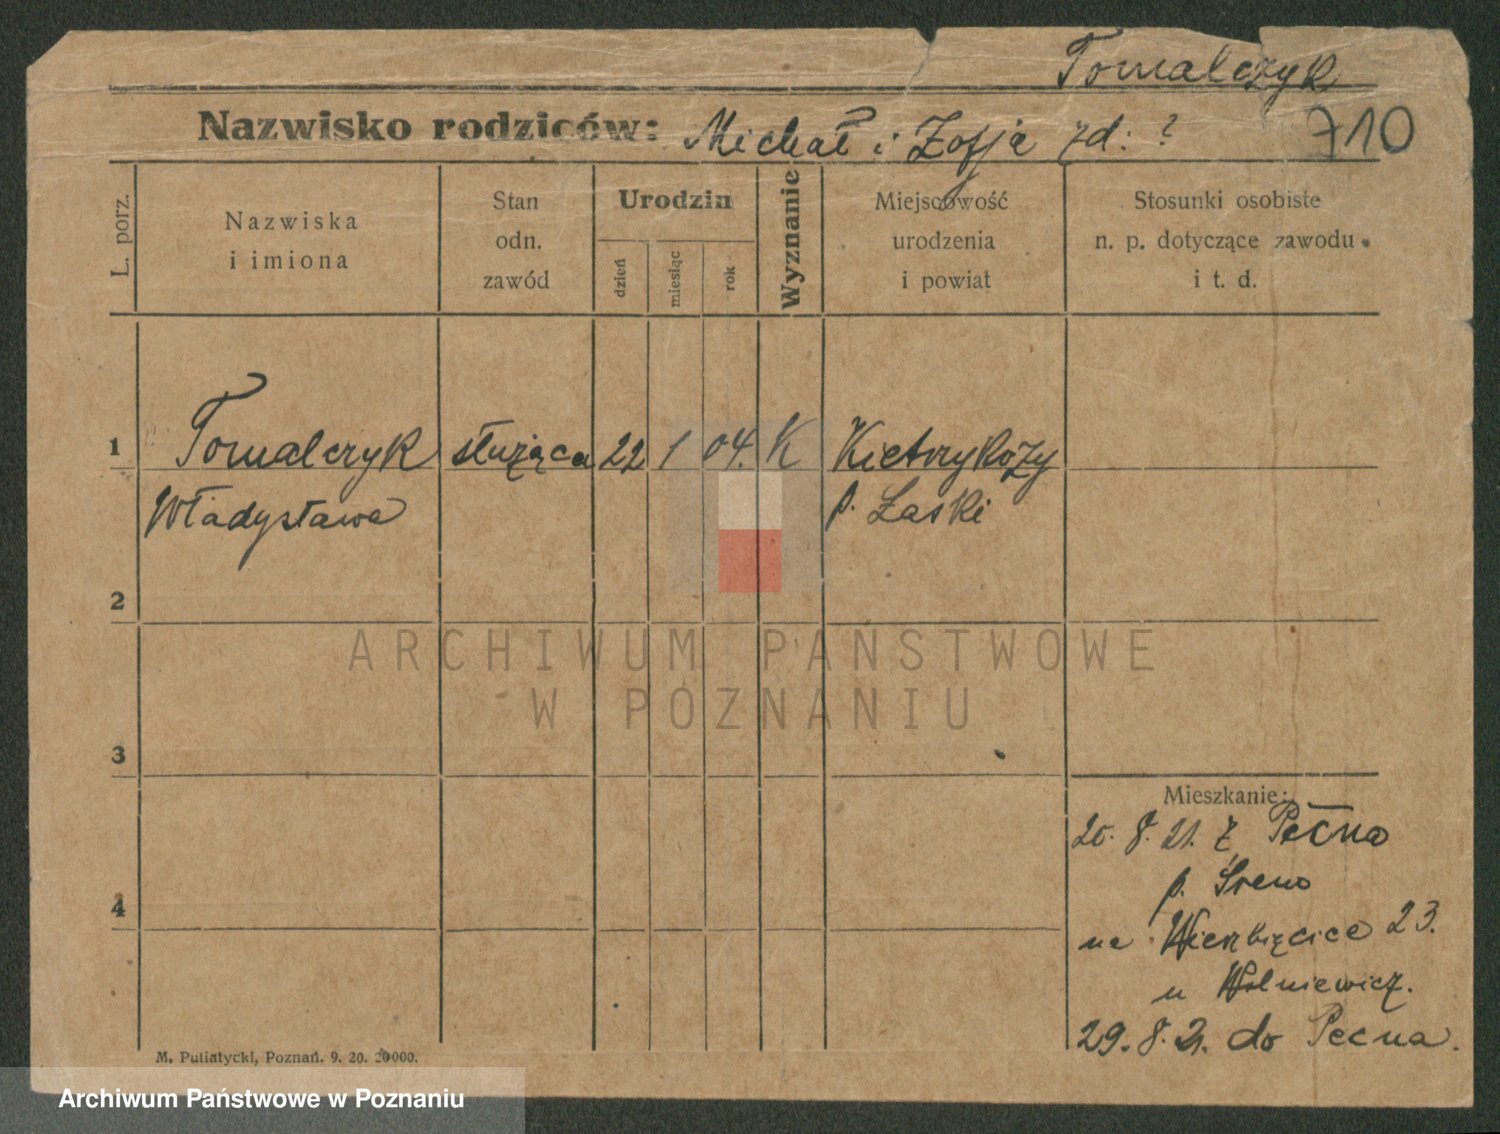 Tomalczyk
Nazwisko rodziców: Michał i Zofja zd: ? 710
L. porz.
Nazwiska
i imiona
Stan
odn.
zawód
Urodzin
dzień
miesiąc
rok
Wyznanie
Miejscowość
urodzenia
i powiat
Stosunki osobiste
n. p. dotyczące zawodu
i t. d.
1 Tomalczyk służąca 22 1 04. K
Władysława p. Łaski
2
ARCHIWUM PAŃSTWOWE
W POZNANIU
3
Mieszkanie:
20. 8. 21. z Pecna
p. Śrem
4
na Wierzbięcice 23.
u Wolniewicz.
29. 8. 21. do Pecna.
M. Putiatycki, Poznań. 9. 20. 20000.
Archiwum Państwowe w Poznaniu